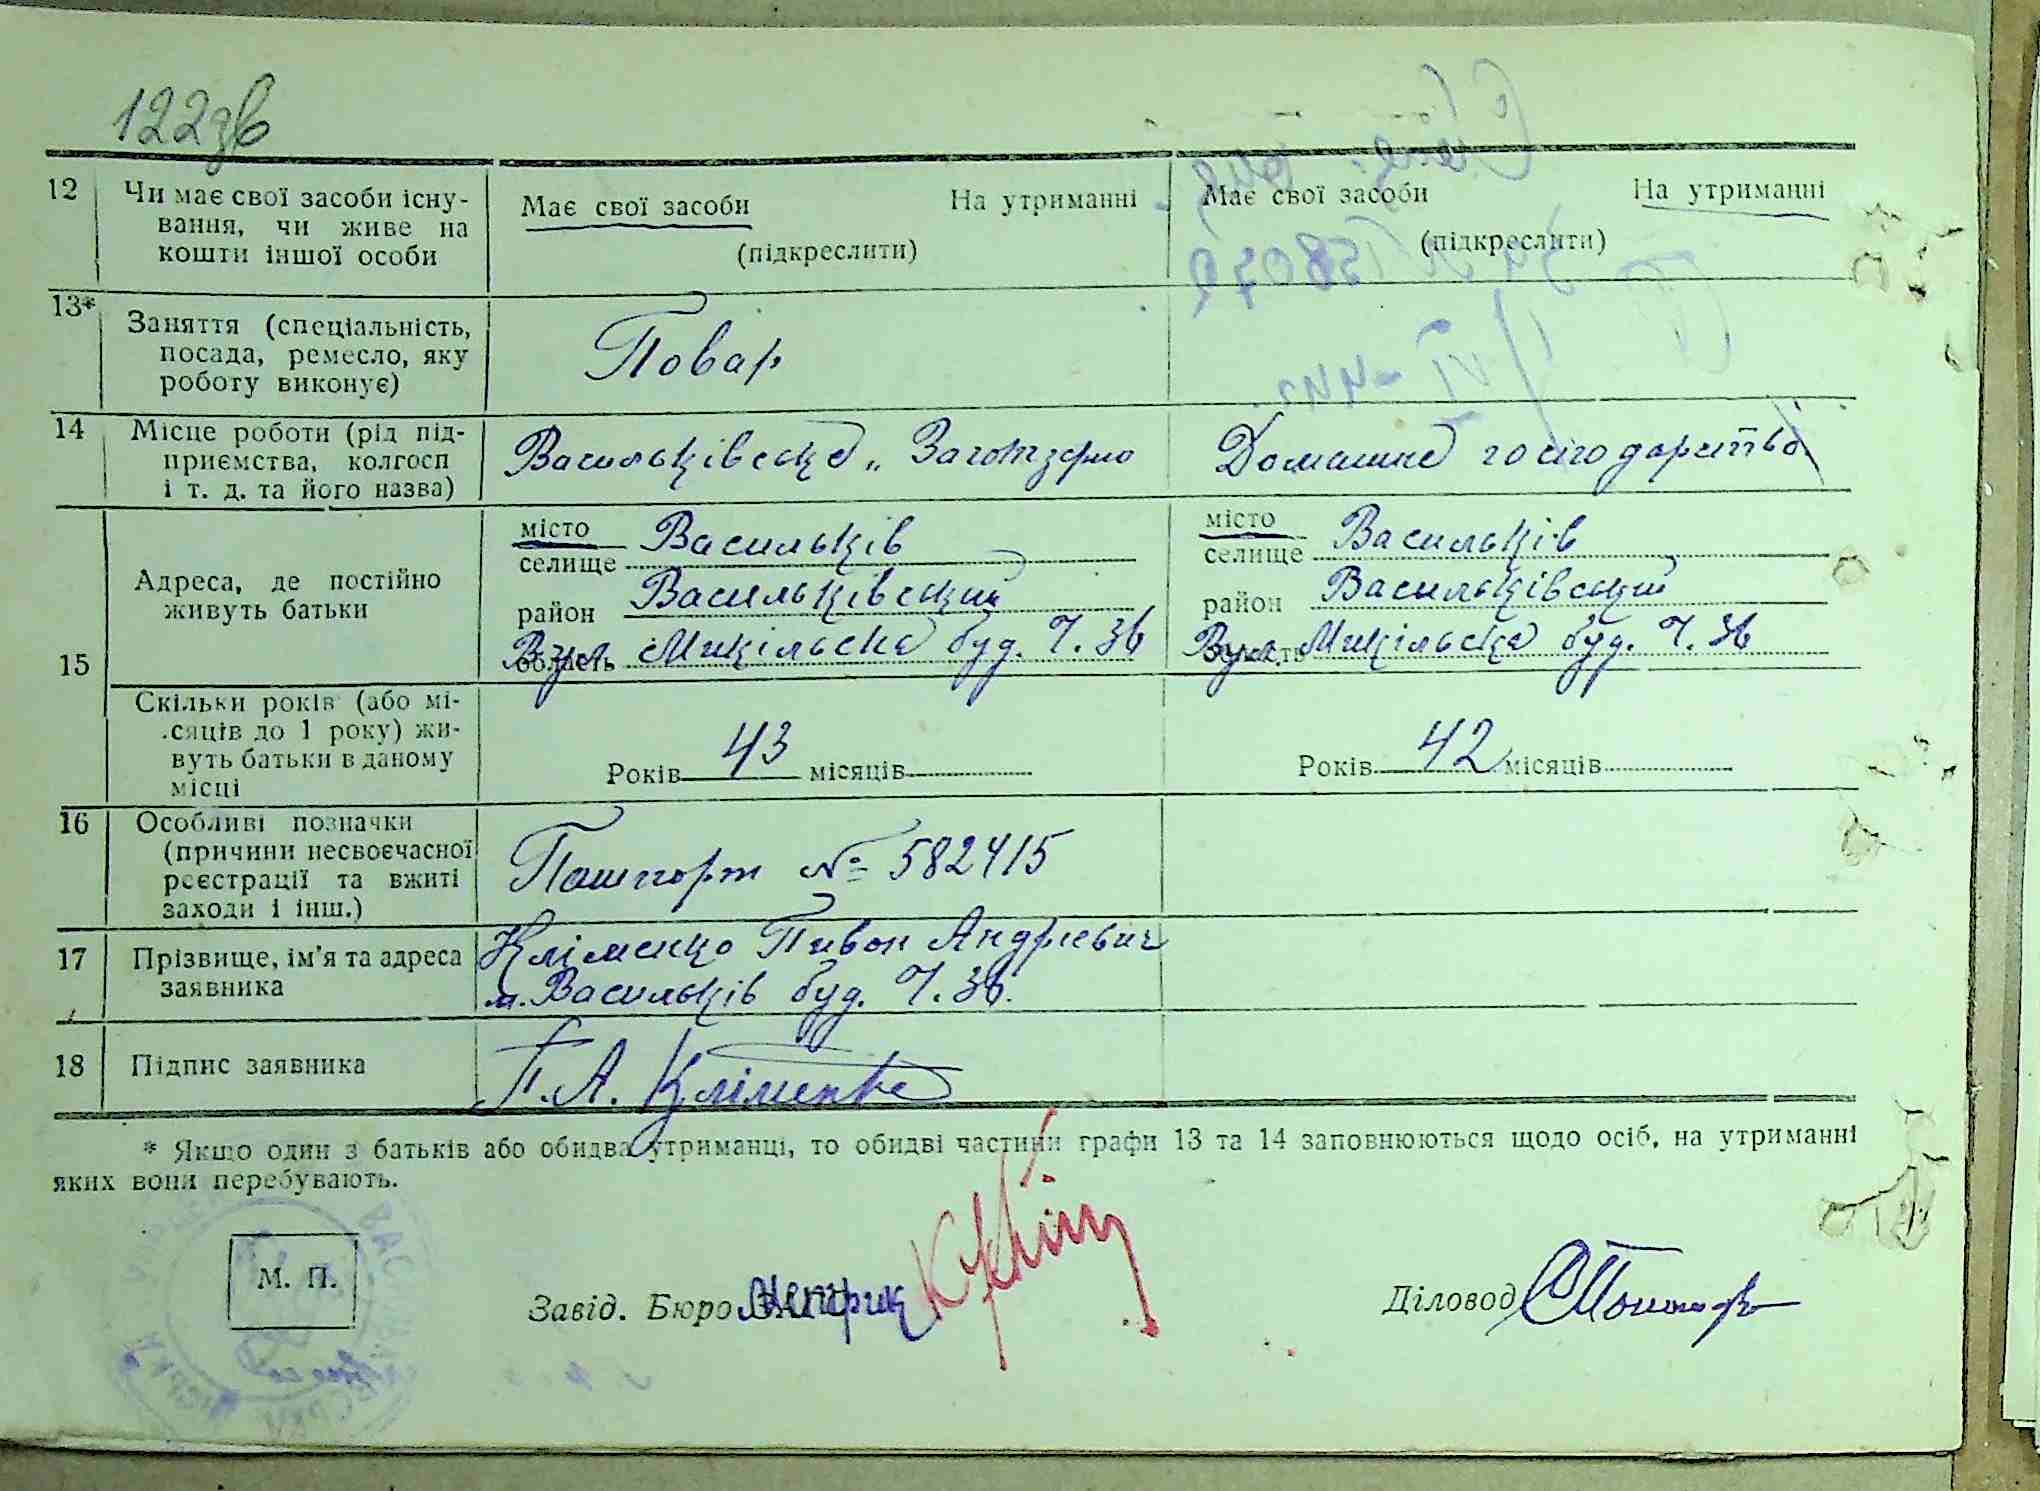 122зв
12 Чи має свої засоби існу-
вання, чи живе на
кошти іншої особи
Має свої засоби На утриманні
(підкреслити)
Має свої засоби На утриманні
(підкреслити)
13* Заняття (спеціальність,
посада, ремесло, яку
роботу виконує)
Повар
14 Місце роботи (рід під-
приємства, колгосп
і т. д. та його назва)
Васильківське „Заготзерно
Домашнє господарство
15 Адреса, де постійно
живуть батьки
місто Васильків
селище
район Васильківський
область Вул. Микільська буд. Ч. 36
місто Васильків
селище
район Васильківський
область Вул. Микільська буд. Ч. 36
Скільки років (або мі-
сяців до 1 року) жи-
вуть батьки в даному
місці
Років 43 місяців
Років 42 місяців
16 Особливі позначки
(причини несвоєчасної
реєстрації та вжиті
заходи і інш.)
Пашпорт № 582415
17 Прізвище, ім'я та адреса
заявника
Кліменко Пивон Андрієвич
м. Васильків буд. Ч. 36.
18 Підпис заявника
П. А. Кліменко
* Якщо один з батьків або обидва утриманці, то обидві частини графи 13 та 14 заповнюються щодо осіб, на утриманні
яких вони перебувають.
М. П.
Завід. Бюро ЗАГС
Діловод